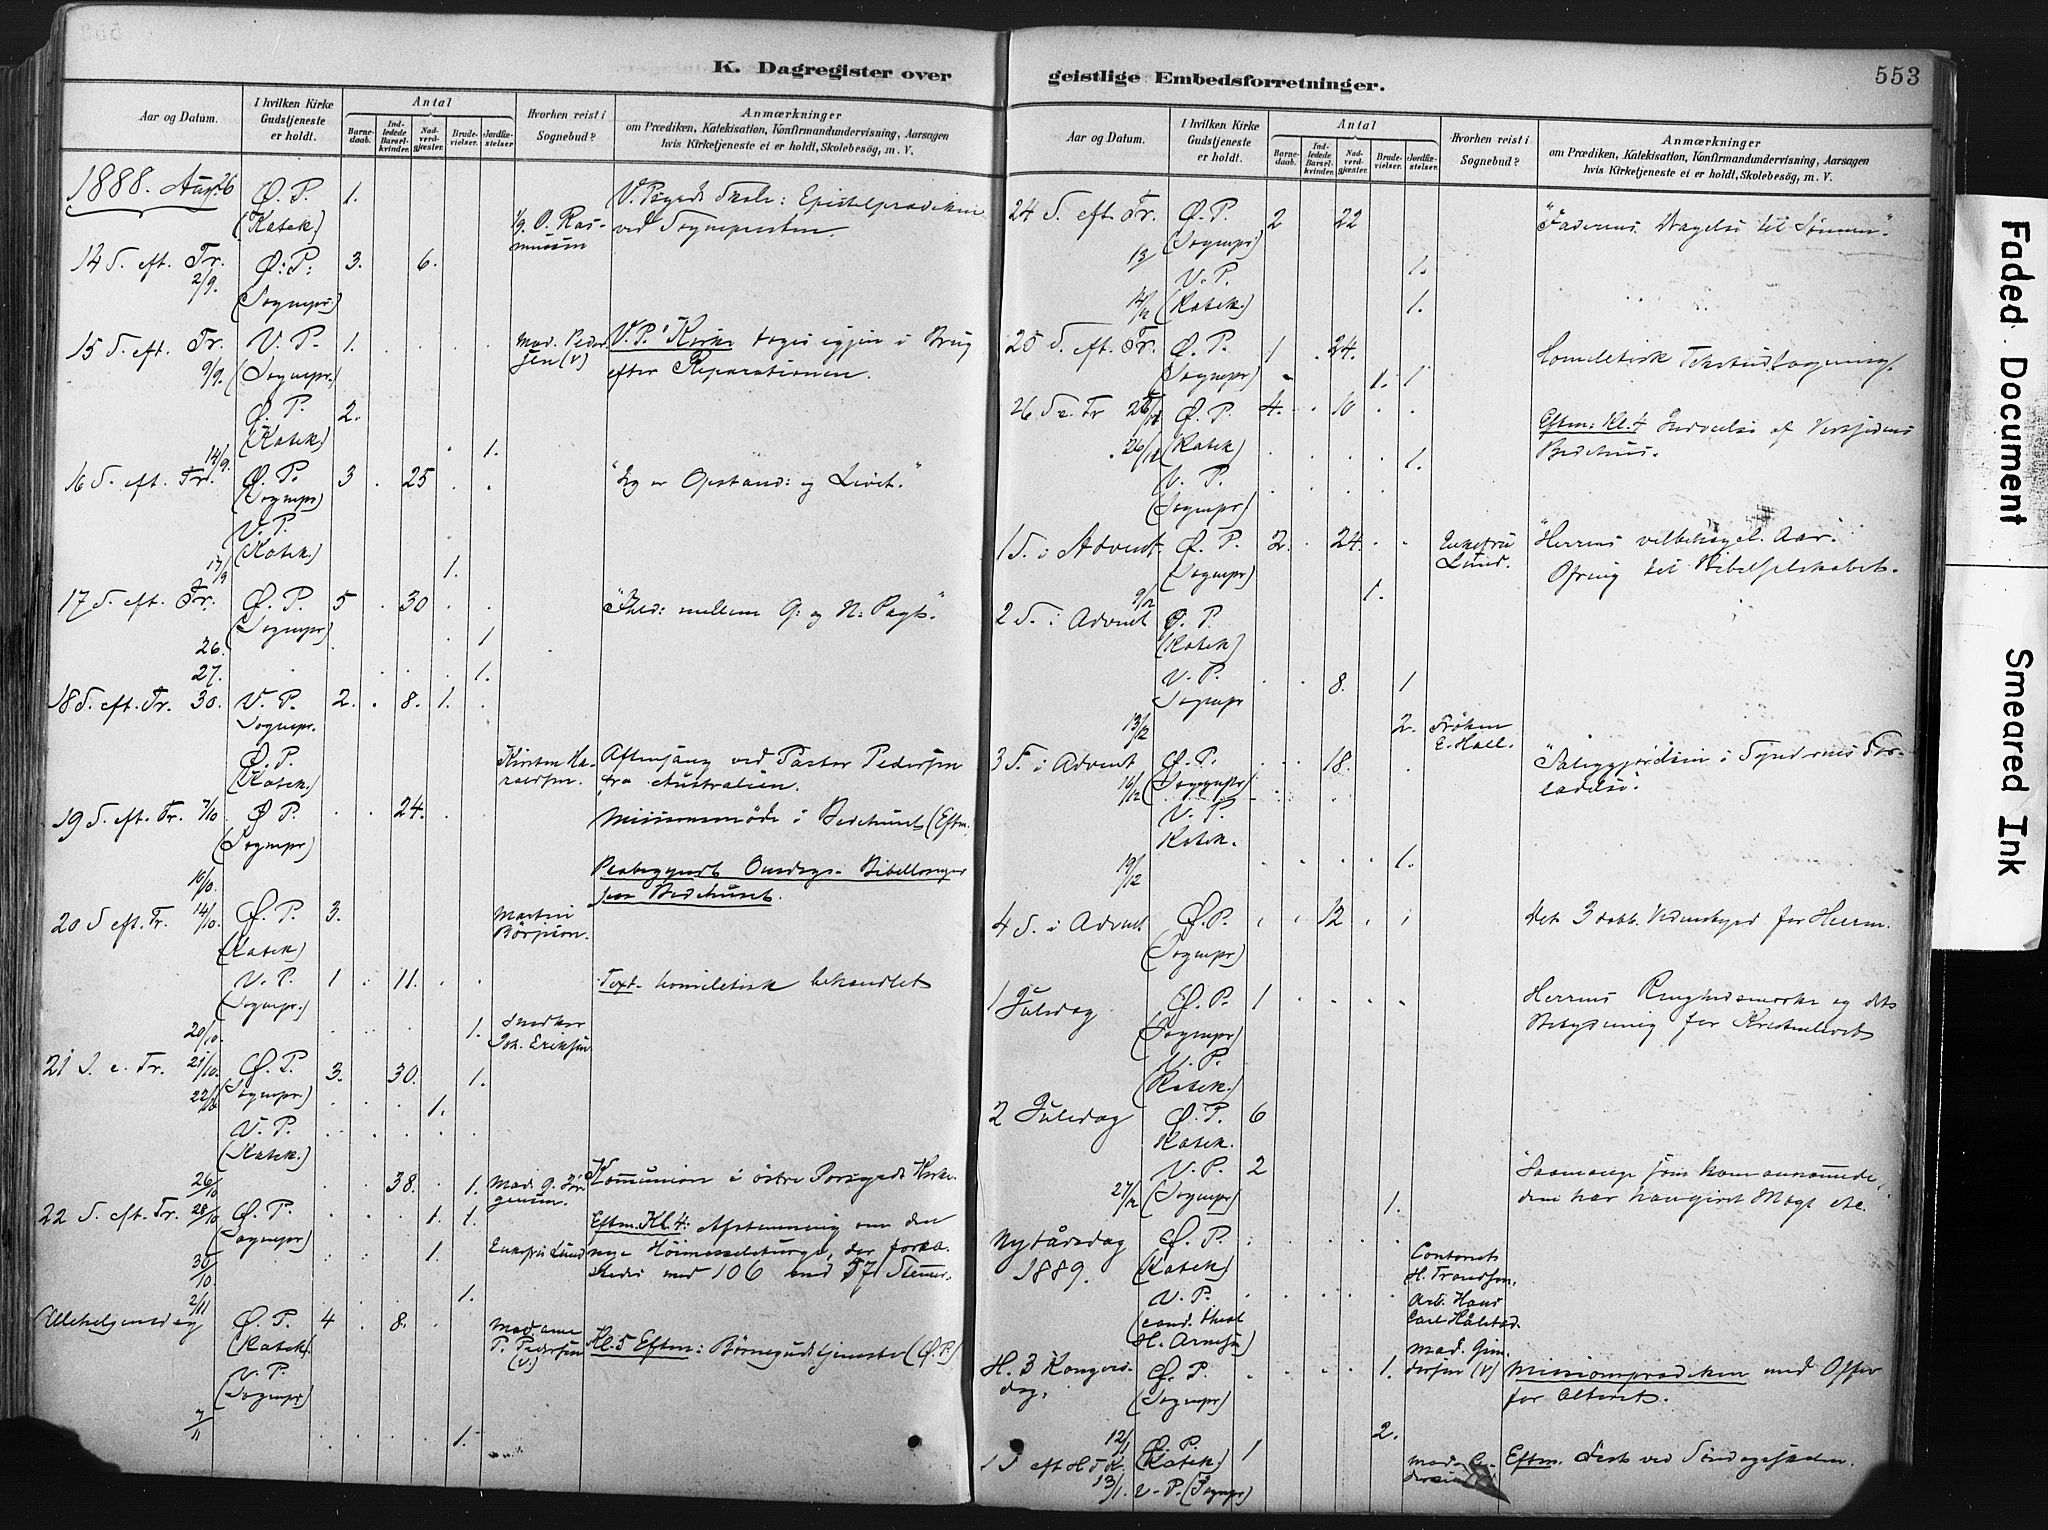 553
K. Dagregister over
Aar og Datum.
I hvilken Kirke Gudstjeneste er holdt.
Antal
Barnedaab.
Indledede Barselkvinder.
Nadverdgjæster.
Brudevielser.
Jordfæstelser
Hvorhen reist i Sognebud?
Anmærkninger
om Prædiken, Katekisation, Konfirmandundervisning, Aarsagen
hvis Kirketjeneste ei er holdt, Skolebesøg, m. V.
1888. Aug. 26 Ø. P. 1.
(Katek.)
ved Sognepresten.
14 S. eft. Tr. Ø. P. 3. 6.
2/9. (Sognepr.)
15 S. eft. Tr. V. P. 1. Mad. Peder- V. P.s Kirke toges igjen i Brug
9/9. (Sognepr.) sen (V) efter Reparationen.
Ø. P. 2.
(Katek.)
14/9. 1.
16 S. eft. Tr. Ø. P. 3 25 "Jeg er Opstand: og Livet."
(Sognepr)
V. P.
(Katek)
1.
17 S. eft. Tr. Ø. P. 5 30 mellem G: og N: Pagt."
(Sognepr)
26. 1
27. 1.
18 S. eft. Tr. 30. V. P. 2. 8. 1.
Sognepr.
Ø. P. Aftensang ved Pastor Pedersen
(Katek.) fra Australien.
19 S. eft. Tr. 7/10 Ø P. 24. Missionsmöde i Bedehuset (Eftm.
(Sognepr)
10/10. Paabegyndt Onsdags-Bibellæsninger
paa Bedehuset.
20 S eft. Tr. 14/10. Ø. P. 3. Martin
(Katek)
V. P. 1 11. Text homiletisk behandlet
(Sognepr.)
20/10. 1. Snedker
Joh. Eriksen
21 S. e. Tr. 21/10. Ø. P. 3. 30. 1.
22/10 (Sognepr.) 1.
V. P.
(Katek.)
26/10 38. 1. Kommunion i östre Porsgrunds Kirke.
22 S. eft. Tr. 28/10 Ø. P. 1. 1. Eftm. Kl. 4: Afstemning om den
(Sognepr) 1. Enkefru Lund nye Höimesseliturgi, der forka-
30/10 stedes med 106 mod 57 Stemmer.
2/11 1.
Allehelgensdag Ø. P. 4 8. Madame
(Katek). P. Pedersen (V.) Kl. 5 Eftm: Börnegudstjeneste (Ø. P.)
V. P.
(Sognepr)
7/11 1.
geistlige Embedsforretninger.
Aar og Datum.
I hvilken Kirke Gudstjeneste er holdt.
Antal
Barnedaab.
Indledede Barselkvinder.
Nadverdgjæster.
Brudevielser.
Jordfæstelser.
Hvorhen reist i Sognebud?
Anmærkninger
om Prædiken, Katekisation, Konfirmandundervisning, Aarsagen
hvis Kirketjeneste ei er holdt, Skolebesøg, m. V.
24 S. eft. Tr. Ø. P. 2 22 "Faderens Dragelse til Sönnen".
(Sognepr)
V. P. 1.
(Katek.) 1.
25 S. eft. Tr. Ø. P. 1 24. Homiletisk Textudlægning.
(Sognepr) 1. 1
26 S. e. Tr Ø. P. 4. 10 Eftm: Kl. 4 Indvielse af
(Katek) 1. Bedehus.
V. P.
(Sognepr)
1 S. i Advent Ø. P. 2. 24. Enkefru "Herrens velbehagel. Aar".
(Sognepr) Lund. Ofring til Bibelselskabet.
9/12 1.
2 S. i Advent Ø. P.
(Katek)
V. P. 8. 1
Sognepr
13/12 2. Fröken
E. Hall.
3 S. i Advent Ø. P. 18. "Saliggjörelsen i Syndernes For-
16/12 (Sognepr) ladelse".
V. P.
Katek.
19/12 1.
4 S. i Advent Ø. P. 12 Det 3 dobb. Vidnesbyrd for Herren.
(Sognepr)
1 Juledag Ø. P. 1 Herrens og dets
(Sognepr) Betydning for Kristenlivet
V. P.
(Katek.)
2 Juledag Ø. P. 6
Katek.
V. P. 2 "Saamange som ham annammede,
27/12 (Sognepr) 1. dem har han givet Magt etc.
Nytårsdag Ø. P.
1889. (Katek)
V. P. Arb. Hans
(cand. theol Carl Halstad.
H. Arnesen
H. 3 Kongers- Ø. P. 1. Missionsprædiken med Offer
dag. (Sognepr) for Alteret.
12/1 2.
1 S eft H 3 K. Ø. P. (Katek.) 1 Eftm. Fest ved Söndagsskolen.
13/1. V. P. (Sognepr)
Faded Document
Smeared Ink